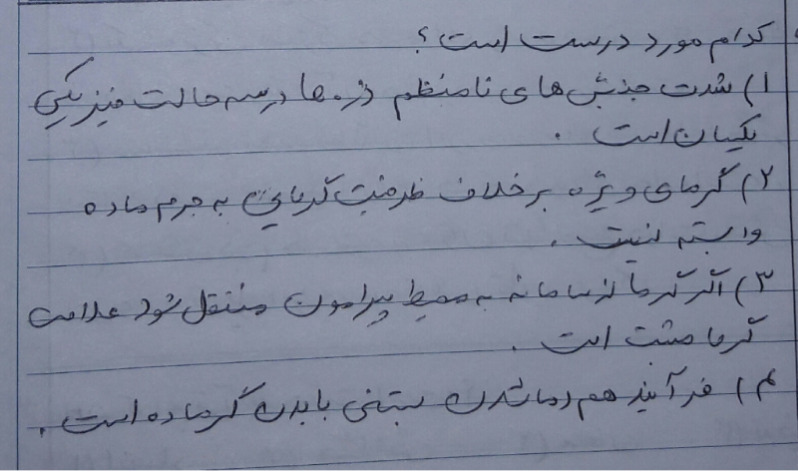 کدام مورد درست است؟
۱) شدت جنبش های نامنظم ذره ها در سه حالت فیزیکی
یکسان است .
۲) گرمای ویژه برخلاف ظرفیت گرمایی به جرم ماده
وابسته نیست .
۳) اگر گرما از سامانه به محیط پیرامون منتقل شود علامت
گرما مثبت است .
۴) فرآیند هم دما شدن بستنی با بدن گرماده است .